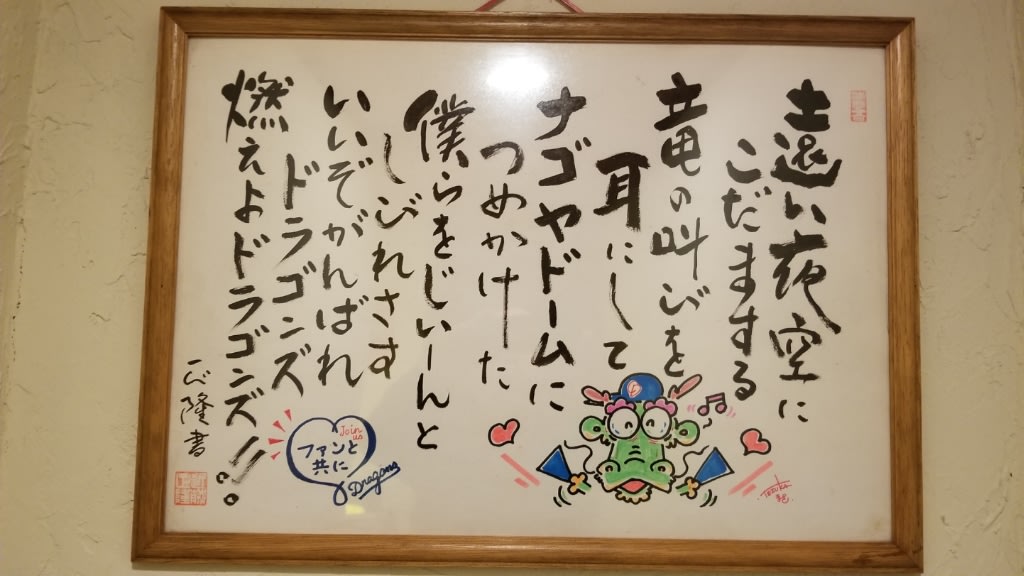 遠い夜空に
こだまする
竜の叫びを
耳にして
ナゴヤドームに
つめかけた
僕らをじぃーんと
しびれさす
いいぞがんばれ
ドラゴンズ
燃えよドラゴンズ!!
隆書
Join us
ファンと
共に
Dragons
TEZUKA